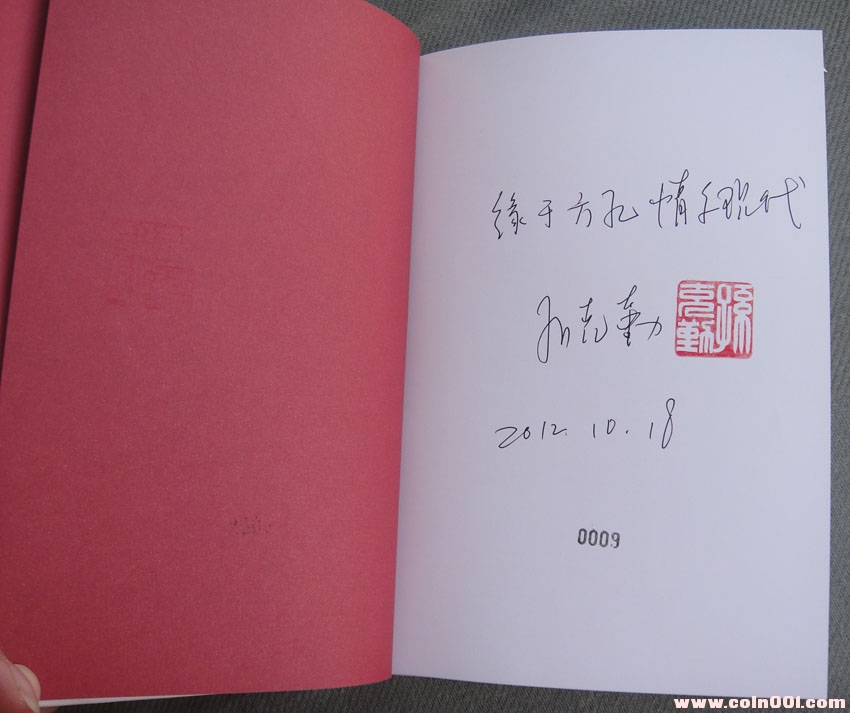 缘于方孔 情系现代
孙克勤
孫克勤
2012.10.18
0009
www.coin001.com